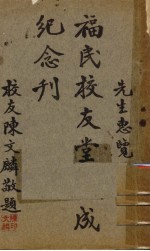 先生惠覽
福民校友堂 成
紀念刊
校友陳文麟敬題